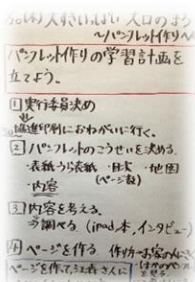 大すき いっぱい 大口のまち
～パンフレット作り～
パンフレット作りの学習計画を
立てよう。
1 実行委員決め
印刷におねがいに行く。
2 パンフレットのこうせいを決める。
・表紙・うら表紙 ・目次 ・地図
・内容 (ページ数)
3 内容を考える。
→調べる (ipad、本、インタビュー)
4 ページを作る
ページを作って、